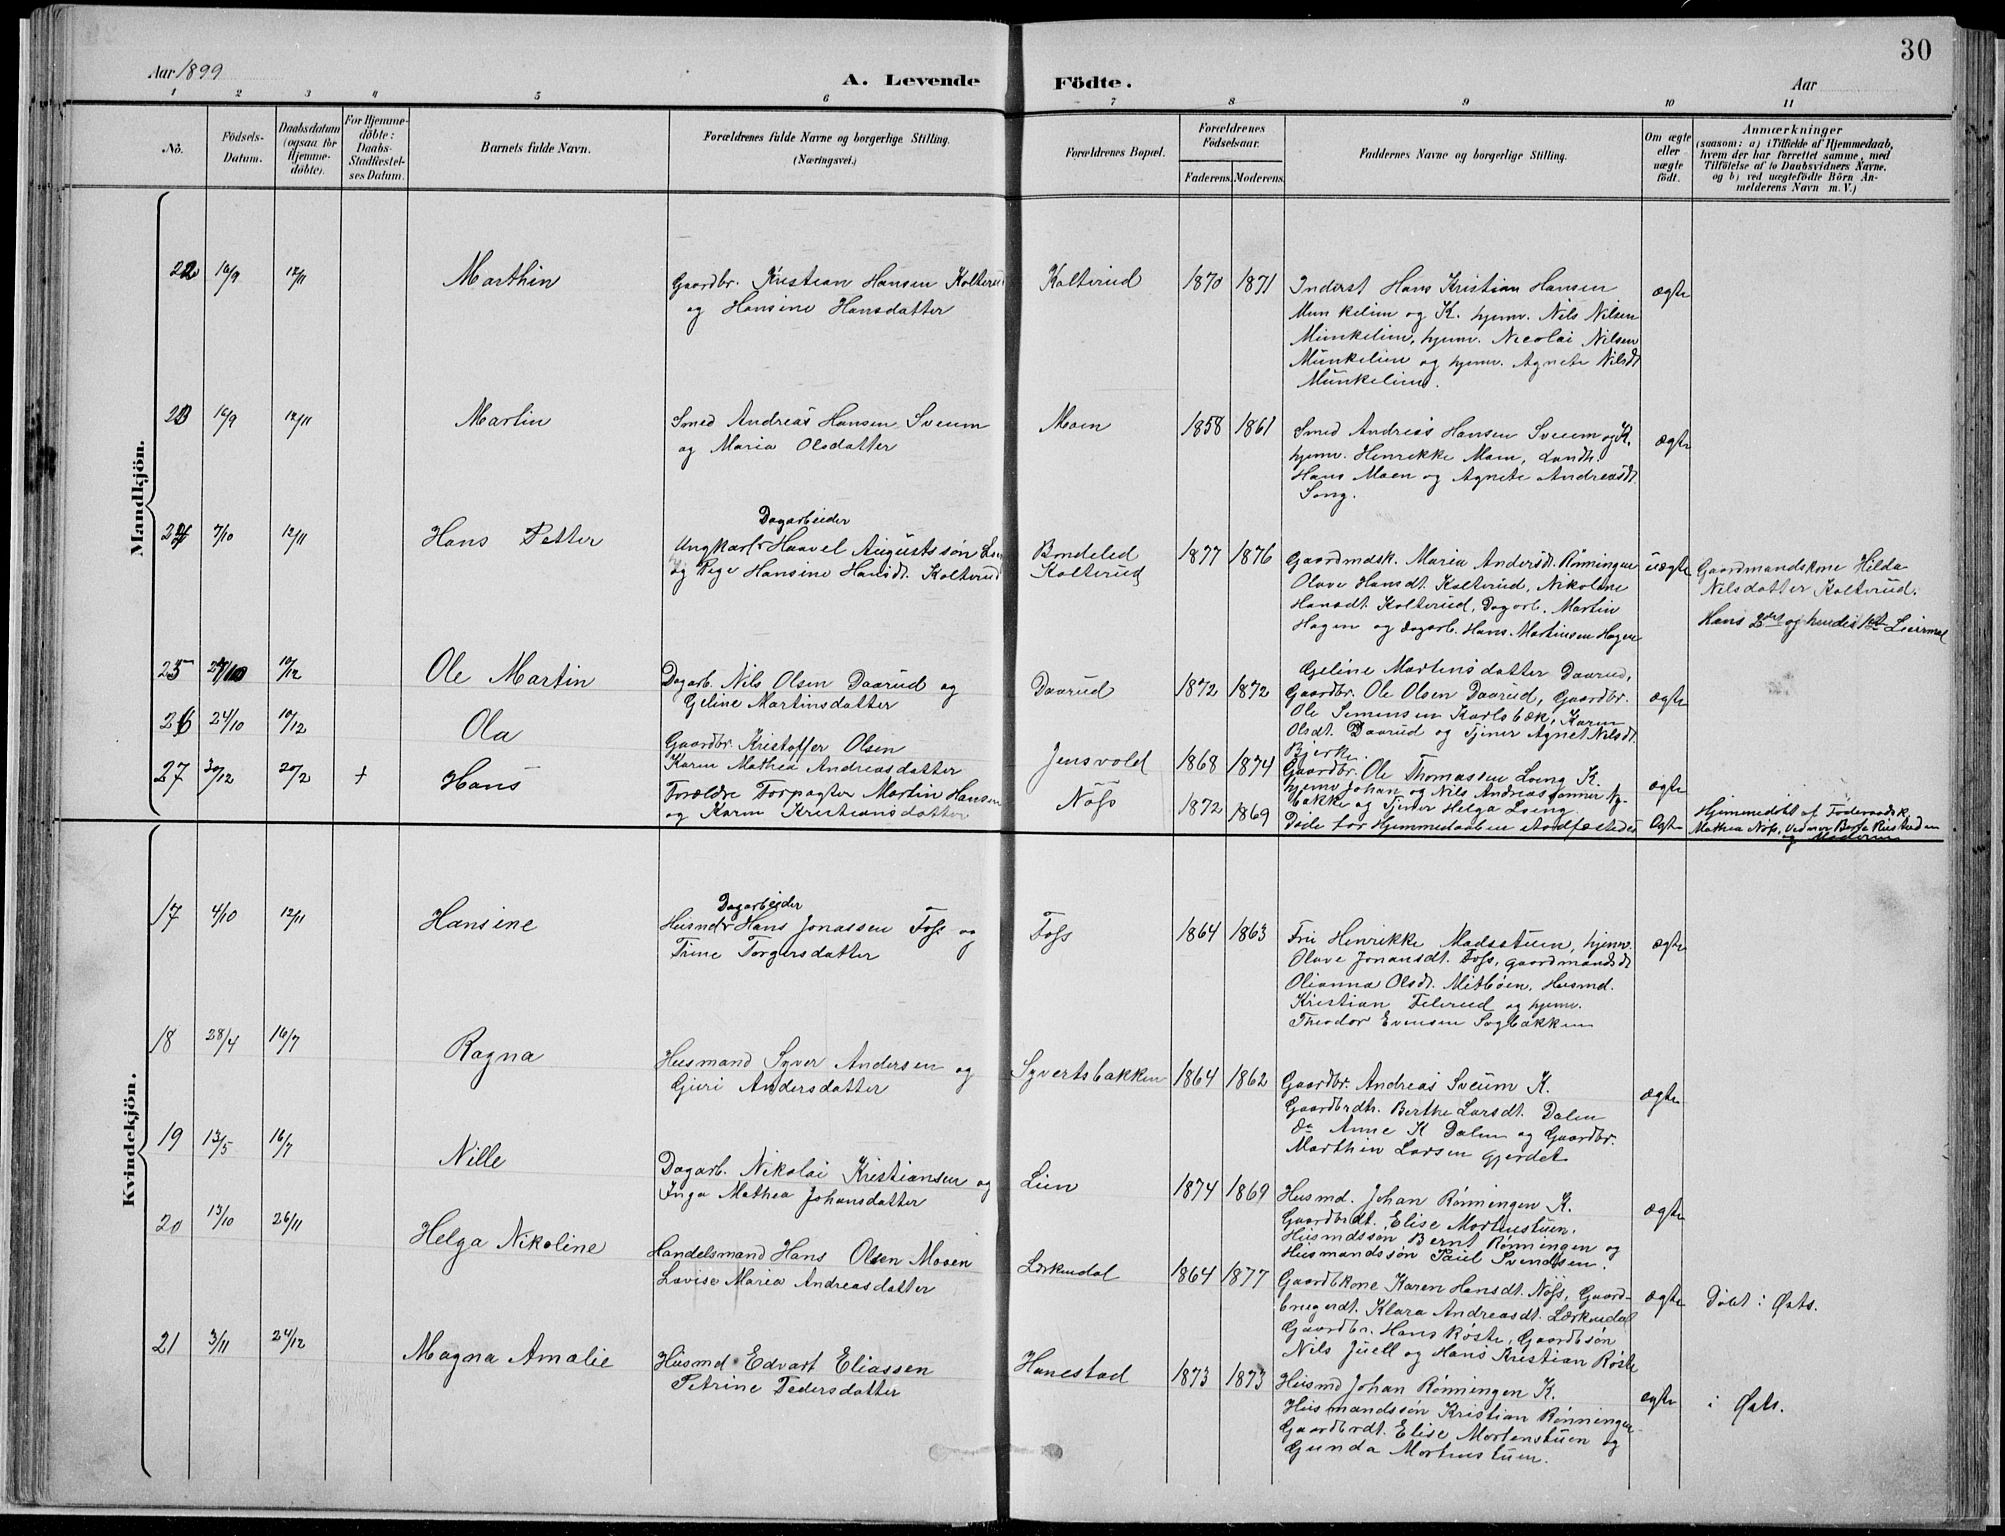 30
Aar 1899
A. Levende Födte.
Aar
1 2 3 4 5 6 7 8 9 10 11
No.
Födsels-
Datum.
Daabsdatum
(ogsaa for
Hjemme-
døbte).
For Hjemme-
döbte:
Daabs-
Stadfæstel-
ses Datum.
Barnets fulde Navn.
Forældrenes fulde Navne og borgerlige Stilling.
(Næringsvei.)
Forældrenes Bopæl.
Forældrenes
Födselsaar.
Faderens. Moderens.
Faddernes Navne og borgerlige Stilling.
Om ægte
eller
uægte
født.
Anmærkninger
(saasom: a) i Tilfælde af Hjemmedaab,
hvem der har forrettet samme, med
Tilföielse af to Daabsvidners Navne.
og b) ved uægtefödte Börn An-
melderens Navn m. V.)
Mandkjön.
22 16/9 12/11
Marthin
Gaardbr. Kristian Hansen Kolterud
og Hansine Hansdatter
Kolterud
1870 1871
Inderst Hans Kristian Hansen
Munkelien og K. hjemv. Nils Nilsen
Munkelien, hjemv. Nicolai Nilsen
Munkelien og hjemv. Agnete Nilsdt
Munkelien.
ægte
23 16/9 12/11
Martin
Smed Andreas Hansen Sveum
og Maria Olsdatter
Moen
1858 1861
Smed Andreas Hansen Sveum og K.
hjemv. Henrikke Moen, Landh.
Hans Moen og Agnete Andreasdt.
Song.
ægte
24 7/10 12/11
Hans Petter
Dagarbeider
Ungkarl Haavel Augustssøn
og Pige Hansine Hansdt. Kolterud
Bondelid
Kolterud
1877 1876
Gaardmdsk. Maria Andersdt. Rønningen
Olave Hansdt. Kolterud, Nikoline
Hansdt. Kolterud, Dagarb. Martin
Hagen og dagarb. Hans Martinsen Hagen
uægte
Gaardmandskone Hilda
Nilsdatter Kolterud.
Hans 2det og hendes 1ste Leiermaal
25 10/12
Ole Martin
Dagarb. Nils Olsen Daarud og
Geline Martinsdatter
Daarud
1872 1872
Geline Martinsdatter Daarud,
Gaardbr. Ole Olsen Daarud, Gaardbr.
Ole Simensen Karlsbæk, Karen
Olsdt. Daarud og Tjener Agnet Nilsdt.
Bjerke.
ægte
26 24/10 10/12
Ola
Gaardbr. Kristoffer Olsen
Karen Mathea Andreasdatter
Jensvold
1868 1874
Gaardbr. Ole Thomassen Loeng K.
hjemv Johan og Nils Andreassønner Ny-
bakke og Tjener Helga Loeng
ægte
27 30/12 20/2 +
Hans
Forældre Forpagter Martin Hansen
og Karen Kristiansdatter
Nöss
1872 1869
Döde før Hjemmedaaben stadfæstedes
Ægte
Hjemmedöbt af Föderaadsk.
Mathea Nöss, Vidner Berte Rustaden
og Moderen
Kvindekjön.
17 4/10 12/11
Hansine
Dagarbeider
Husmd Hans Jonassen Foss og
Trine Torgersdatter
Foss
1864 1863
Fru Henrikke Madsstuen, hjemv.
Olave Jonansdt. Foss, gaardmandsdt
Olianna Olsdt. Mitbøen, Husmd.
Kristian Filerud og hjemv.
Theodor Evensen Sagbakken
ægte
18 28/4 16/7
Ragna
Husmand Syver Andersen og
Gjuri Andersdatter
Syvertsbakken
1864 1862
Gaardbr. Andreas Sveum K.
Gaardbrdtr. Berthe Larsdt. Dalen
do Anne K Dalen og Gaardbr.
Marthin Larsen Gjerdet
ægte
19 13/5 16/7
Nille
Dagarb. Nikolai Kristiansen og
Inga Mathea Johansdatter
Lien
1874 1869
Husmd. Johan Rønningen K.
Gaardbrdt. Elise Mortenstuen,
Husmdssøn Bernt Rønningen og
Husmandssøn Paul Svendsen.
ægte
20 13/10 26/11
Helga Nikoline
Handelsmand Hans Olsen Moen
Lovise Maria Andreasdatter
Lækendal
1864 1877
Gaardbkone Karen Hansdt. Nöss, Gaard-
brugerdt. Klara Andreasdt. Lækendal
Gaardbr. Hans Røste, Gaardbsøn
Nils Juell og Hans Kristian Røste
ægte
Döbt i Østs.
21 3/11 24/12
Magna Amalie
Husmd Edvart Eliassen
Petrine Pedersdatter
Hanestad
1873 1873
Husmd Johan Rønningen K.
Husmandssön Kristian Rønningen
Gaardbrdt. Elise Mortenstuen og
Gunda Mortenstuen.
ægte
i Østs.